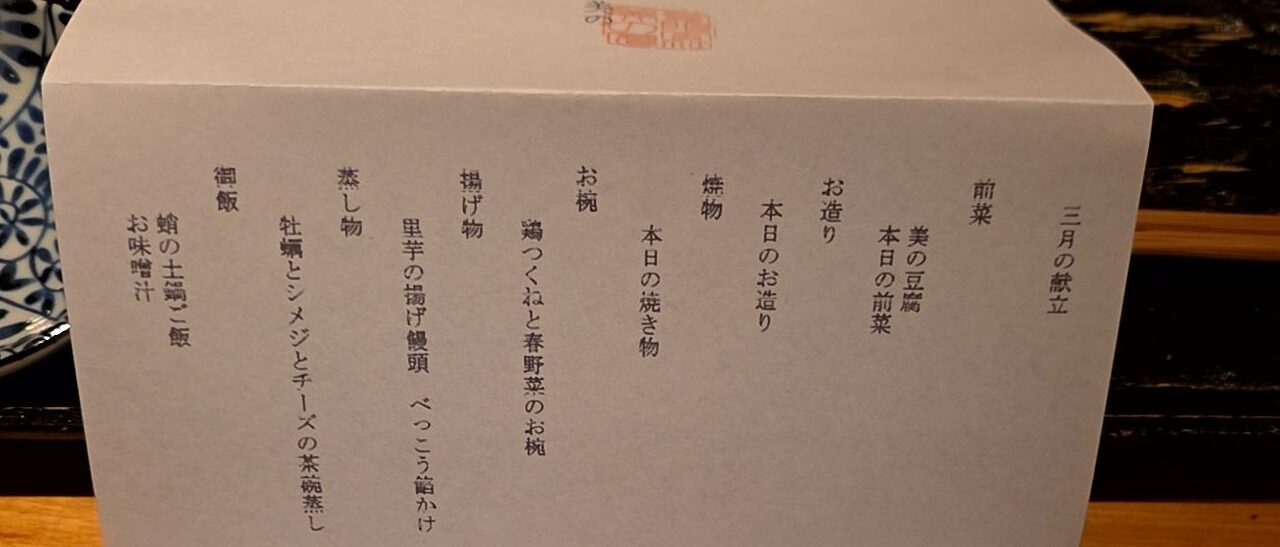 三月の献立
前菜
美の豆腐
本日の前菜
お造り
本日のお造り
焼物
本日の焼き物
お椀
鶏つくねと春野菜のお椀
揚げ物
里芋の揚げ饅頭　べっこう餡かけ
蒸し物
牡蠣とシメジとチーズの茶碗蒸し
御飯
蛸の土鍋ご飯
お味噌汁
美の